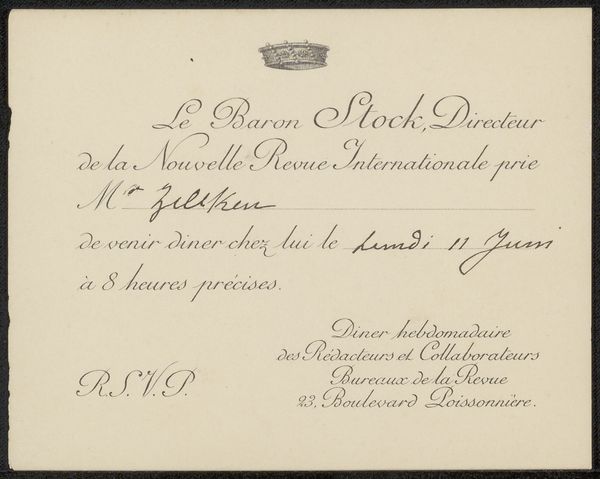 Le Baron Stock, Directeur
de la Nouvelle Revue Internationale prie
Mr Zilcken
de venir diner chez lui le Lundi 11 Juin
à 8 heures précises.
Diner hebdomadaire
des Rédacteurs et Collaborateurs
Bureaux de la Revue
23, Boulevard Poissonnière.
R.S.V.P.